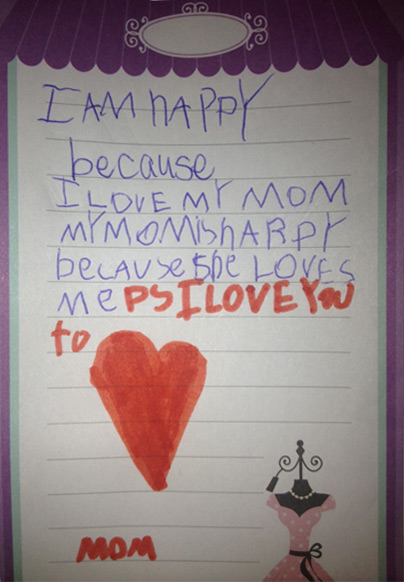 I AM hAPPY
because
I LOVE MY MOM
MY MOM is hAPPY
because she LOVES
me PS I LOVE YOU
to
MOM